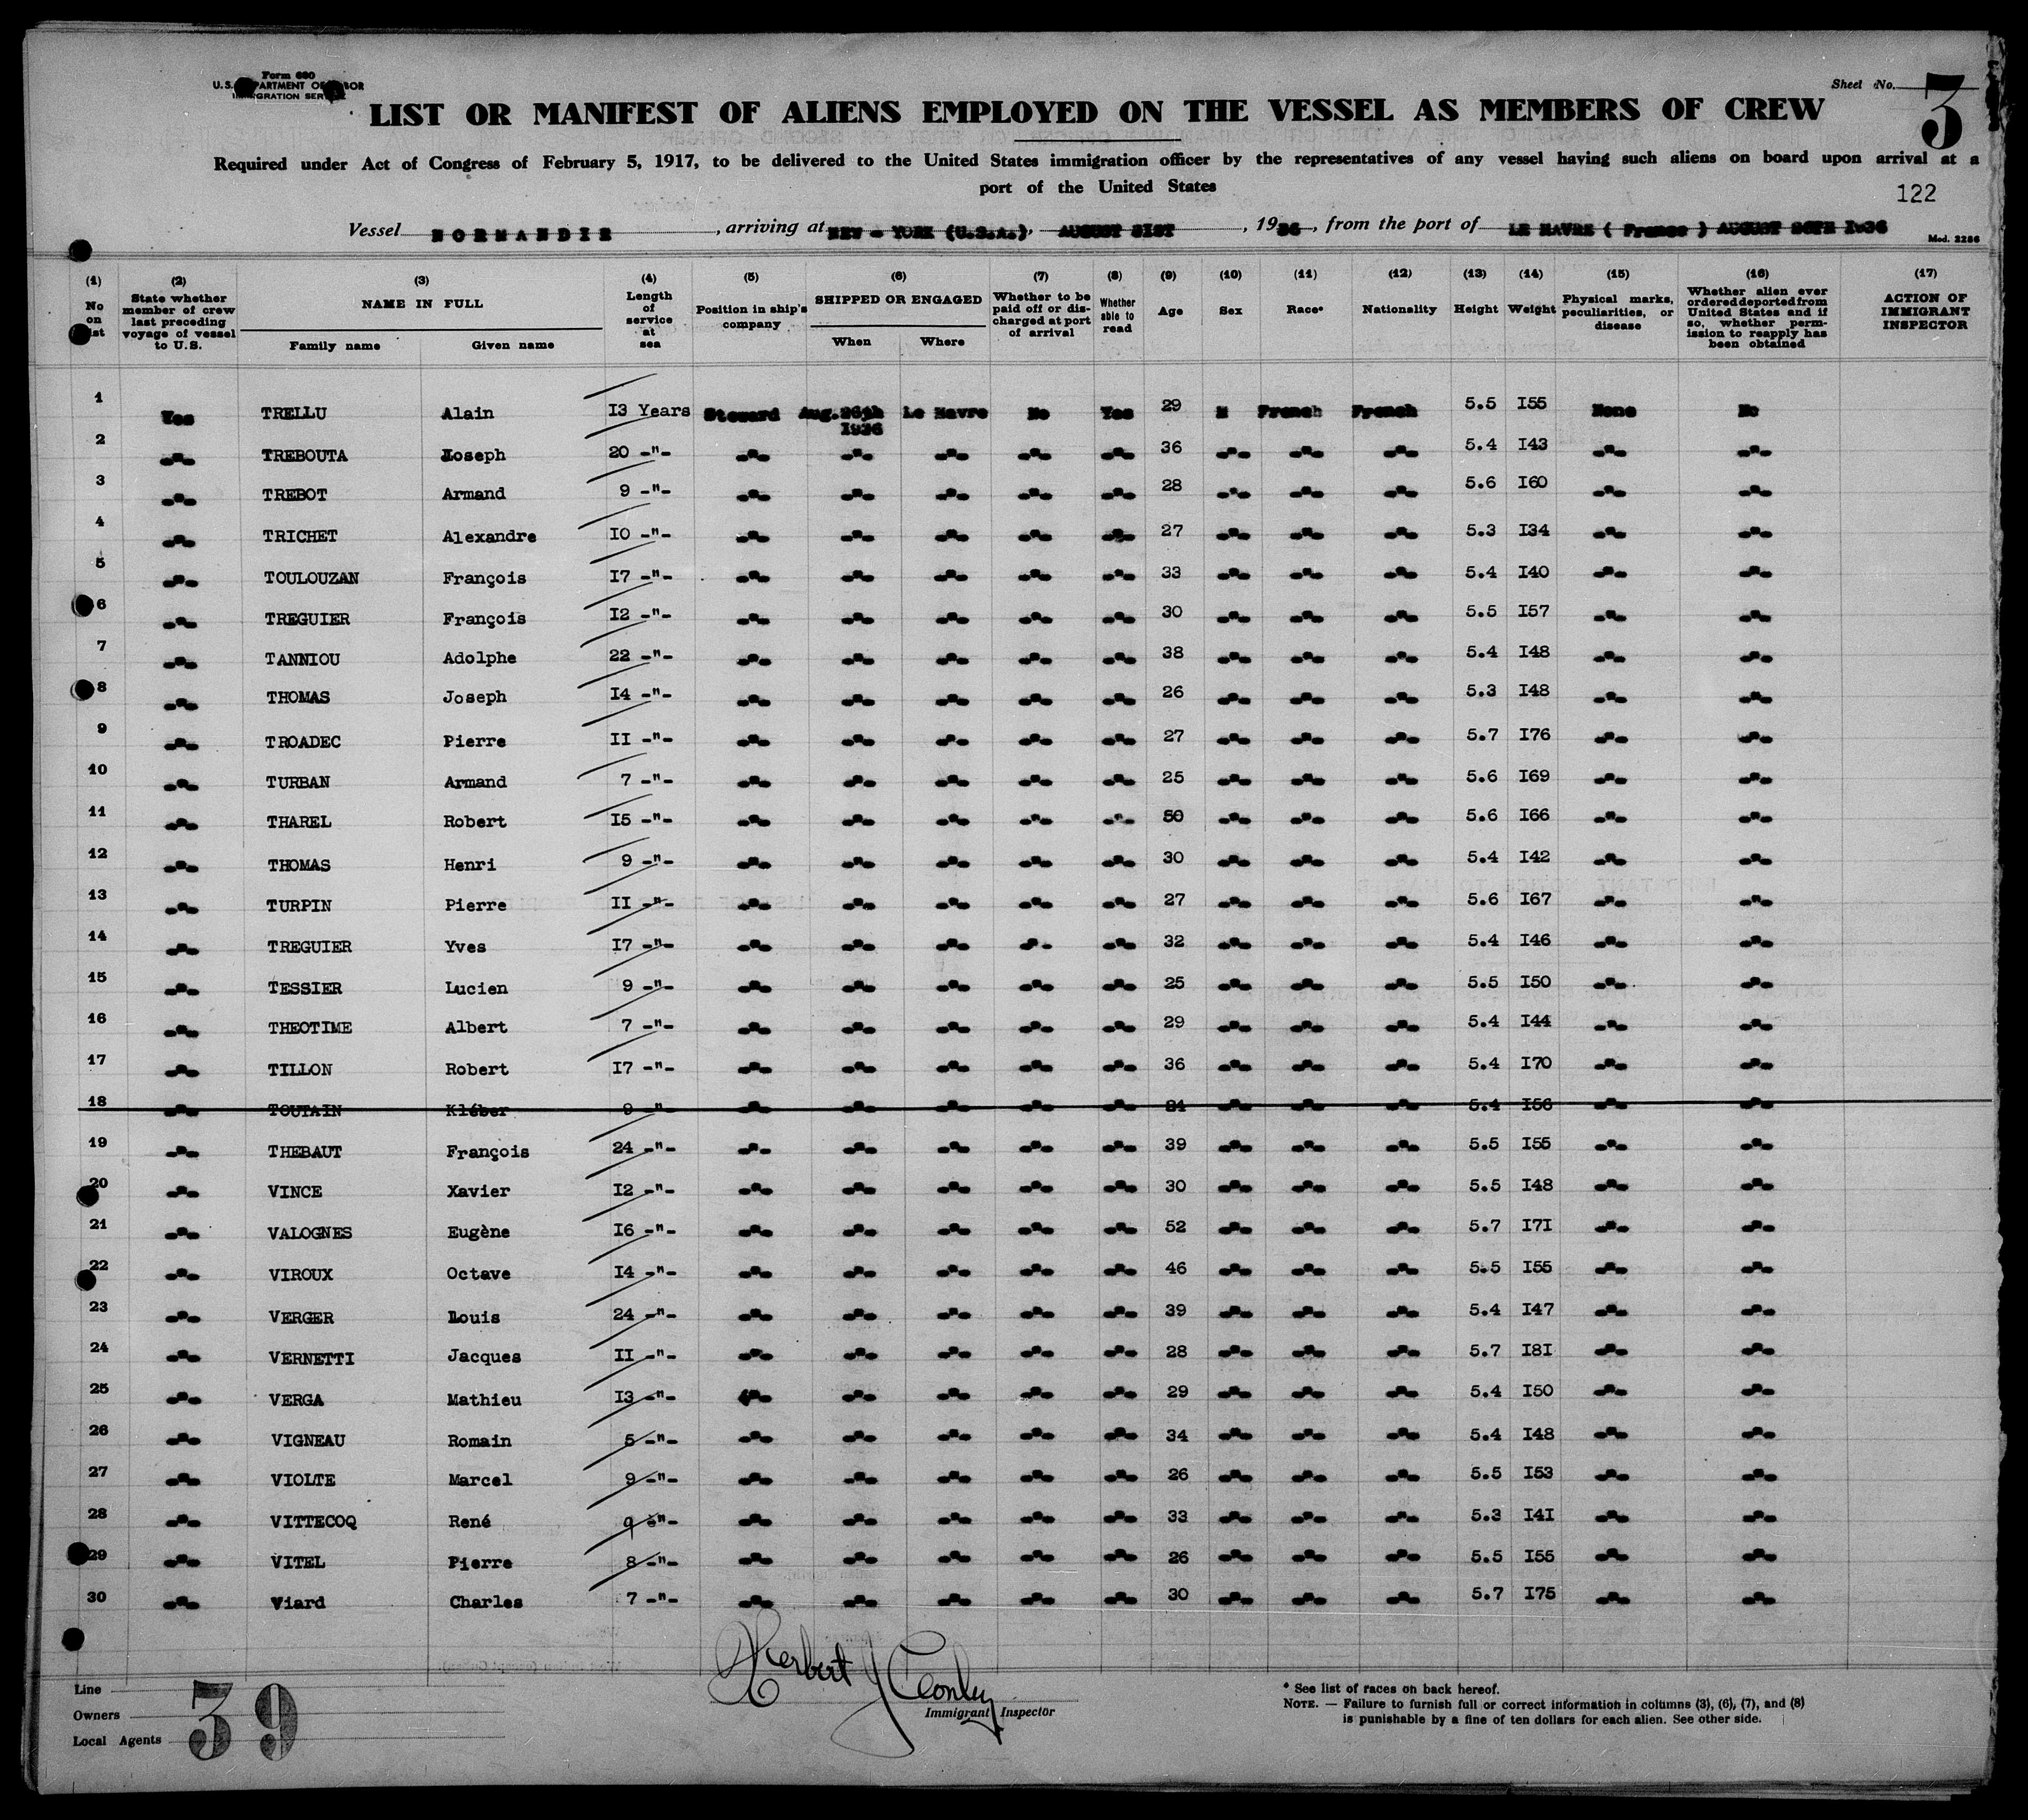 Form 680
U.S. DEPARTMENT OF LABOR
IMMIGRATION SERVICE
Sheet No. 3
LIST OR MANIFEST OF ALIENS EMPLOYED ON THE VESSEL AS MEMBERS OF CREW
Required under Act of Congress of February 5, 1917, to be delivered to the United States immigration officer by the representatives of any vessel having such aliens on board upon arrival at a
port of the United States
122
Vessel NORMANDIE, arriving at NEW - YORK (U.S.A.), AUGUST 31ST, 1936, from the port of LE HAVRE ( France ) AUGUST 26TH 1936
Mod. 2286
(1) No on list
(2) State whether member of crew last preceding voyage of vessel to U.S.
(3) NAME IN FULL Family name Given name
(4) Length of service at sea
(5) Position in ship's company
(6) SHIPPED OR ENGAGED When Where
(7) Whether to be paid off or discharged at port of arrival
(8) Whether able to read
(9) Age
(10) Sex
(11) Race*
(12) Nationality
(13) Height
(14) Weight
(15) Physical marks, peculiarities, or disease
(16) Whether alien ever ordered deported from United States and if so, whether permission to reapply has been obtained
(17) ACTION OF IMMIGRANT INSPECTOR
1 Yes TRELLU Alain I3 Years Steward Aug. 26th I936 Le Havre No Yes 29 M French French 5.5 I55 None No
2 -"- TREBOUTA Joseph 20 -"- -"- -"- -"- -"- -"- 36 -"- -"- -"- 5.4 I43 -"- -"-
3 -"- TREBOT Armand 9 -"- -"- -"- -"- -"- -"- 28 -"- -"- -"- 5.6 I60 -"- -"-
4 -"- TRICHET Alexandre IO -"- -"- -"- -"- -"- -"- 27 -"- -"- -"- 5.3 I34 -"- -"-
5 -"- TOULOUZAN François I7 -"- -"- -"- -"- -"- -"- 33 -"- -"- -"- 5.4 I40 -"- -"-
6 -"- TREGUIER François I2 -"- -"- -"- -"- -"- -"- 30 -"- -"- -"- 5.5 I57 -"- -"-
7 -"- TANNIOU Adolphe 22 -"- -"- -"- -"- -"- -"- 38 -"- -"- -"- 5.4 I48 -"- -"-
8 -"- THOMAS Joseph I4 -"- -"- -"- -"- -"- -"- 26 -"- -"- -"- 5.3 I48 -"- -"-
9 -"- TROADEC Pierre II -"- -"- -"- -"- -"- -"- 27 -"- -"- -"- 5.7 I76 -"- -"-
10 -"- TURBAN Armand 7 -"- -"- -"- -"- -"- -"- 25 -"- -"- -"- 5.6 I69 -"- -"-
11 -"- THAREL Robert I5 -"- -"- -"- -"- -"- -"- 50 -"- -"- -"- 5.6 I66 -"- -"-
12 -"- THOMAS Henri 9 -"- -"- -"- -"- -"- -"- 30 -"- -"- -"- 5.4 I42 -"- -"-
13 -"- TURPIN Pierre II -"- -"- -"- -"- -"- -"- 27 -"- -"- -"- 5.6 I67 -"- -"-
14 -"- TREGUIER Yves I7 -"- -"- -"- -"- -"- -"- 32 -"- -"- -"- 5.4 I46 -"- -"-
15 -"- TESSIER Lucien 9 -"- -"- -"- -"- -"- -"- 25 -"- -"- -"- 5.5 I50 -"- -"-
16 -"- THEOTIME Albert 7 -"- -"- -"- -"- -"- -"- 29 -"- -"- -"- 5.4 I44 -"- -"-
17 -"- TILLON Robert I7 -"- -"- -"- -"- -"- -"- 36 -"- -"- -"- 5.4 I70 -"- -"-
18 -"- TOUTAIN Kléber 9 -"- -"- -"- -"- -"- -"- -"- -"- -"- 5.4 I56 -"- -"-
19 -"- THEBAUT François 24 -"- -"- -"- -"- -"- -"- 39 -"- -"- -"- 5.5 I55 -"- -"-
20 -"- VINCE Xavier I2 -"- -"- -"- -"- -"- -"- 30 -"- -"- -"- 5.5 I48 -"- -"-
21 -"- VALOGNES Eugène I6 -"- -"- -"- -"- -"- -"- 52 -"- -"- -"- 5.7 I7I -"- -"-
22 -"- VIROUX Octave I4 -"- -"- -"- -"- -"- -"- 46 -"- -"- -"- 5.5 I55 -"- -"-
23 -"- VERGER Louis 24 -"- -"- -"- -"- -"- -"- 39 -"- -"- -"- 5.4 I47 -"- -"-
24 -"- VERNETTI Jacques II -"- -"- -"- -"- -"- -"- 28 -"- -"- -"- 5.7 I8I -"- -"-
25 -"- VERGA Mathieu I3 -"- -"- -"- -"- -"- -"- 29 -"- -"- -"- 5.4 I50 -"- -"-
26 -"- VIGNEAU Romain 5 -"- -"- -"- -"- -"- -"- 34 -"- -"- -"- 5.4 I48 -"- -"-
27 -"- VIOLTE Marcel 9 -"- -"- -"- -"- -"- -"- 26 -"- -"- -"- 5.5 I53 -"- -"-
28 -"- VITTECOQ René 9 -"- -"- -"- -"- -"- -"- 33 -"- -"- -"- 5.3 I4I -"- -"-
29 -"- VITEL Pierre 8 -"- -"- -"- -"- -"- -"- 26 -"- -"- -"- 5.5 I55 -"- -"-
30 -"- Viard Charles 7 -"- -"- -"- -"- -"- -"- 30 -"- -"- -"- 5.7 I75 -"- -"-
Herbert J Conley
Immigrant Inspector
Line
Owners
Local Agents
39
* See list of races on back hereof.
NOTE. — Failure to furnish full or correct information in columns (3), (6), (7), and (8)
is punishable by a fine of ten dollars for each alien. See other side.